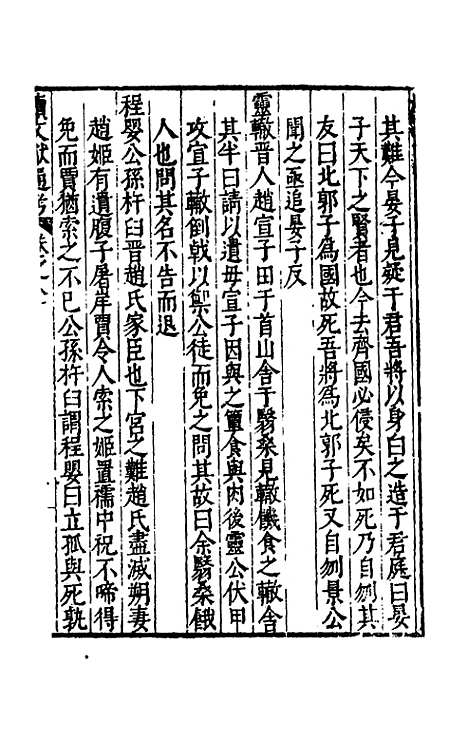 其難今晏子見疑于君吾將以身白之造于君庭曰晏
子天下之賢者也今去齊國必侵矣不如死乃自刎其
友曰北郭子爲國故死吾將爲北郭子死又自刎景公
聞之亟追晏子反
靈輒晉人趙宣子田于首山舍于翳桑見輒饑食之輒舍
其半曰請以遺母宣子因與之簞食與肉後靈公伏甲
攻宣子輒倒戟以禦公徒而免之問其故曰余翳桑餓
人也問其名不告而退
程嬰公孫杵臼晉趙氏家臣也下宮之難趙氏盡滅朔妻
趙姬有遺腹子屠岸賈令人索之姬置襦中祝不啼得
免而賈猶索之不已公孫杵臼謂程嬰曰立孤與死孰
續文獻通考 卷之八